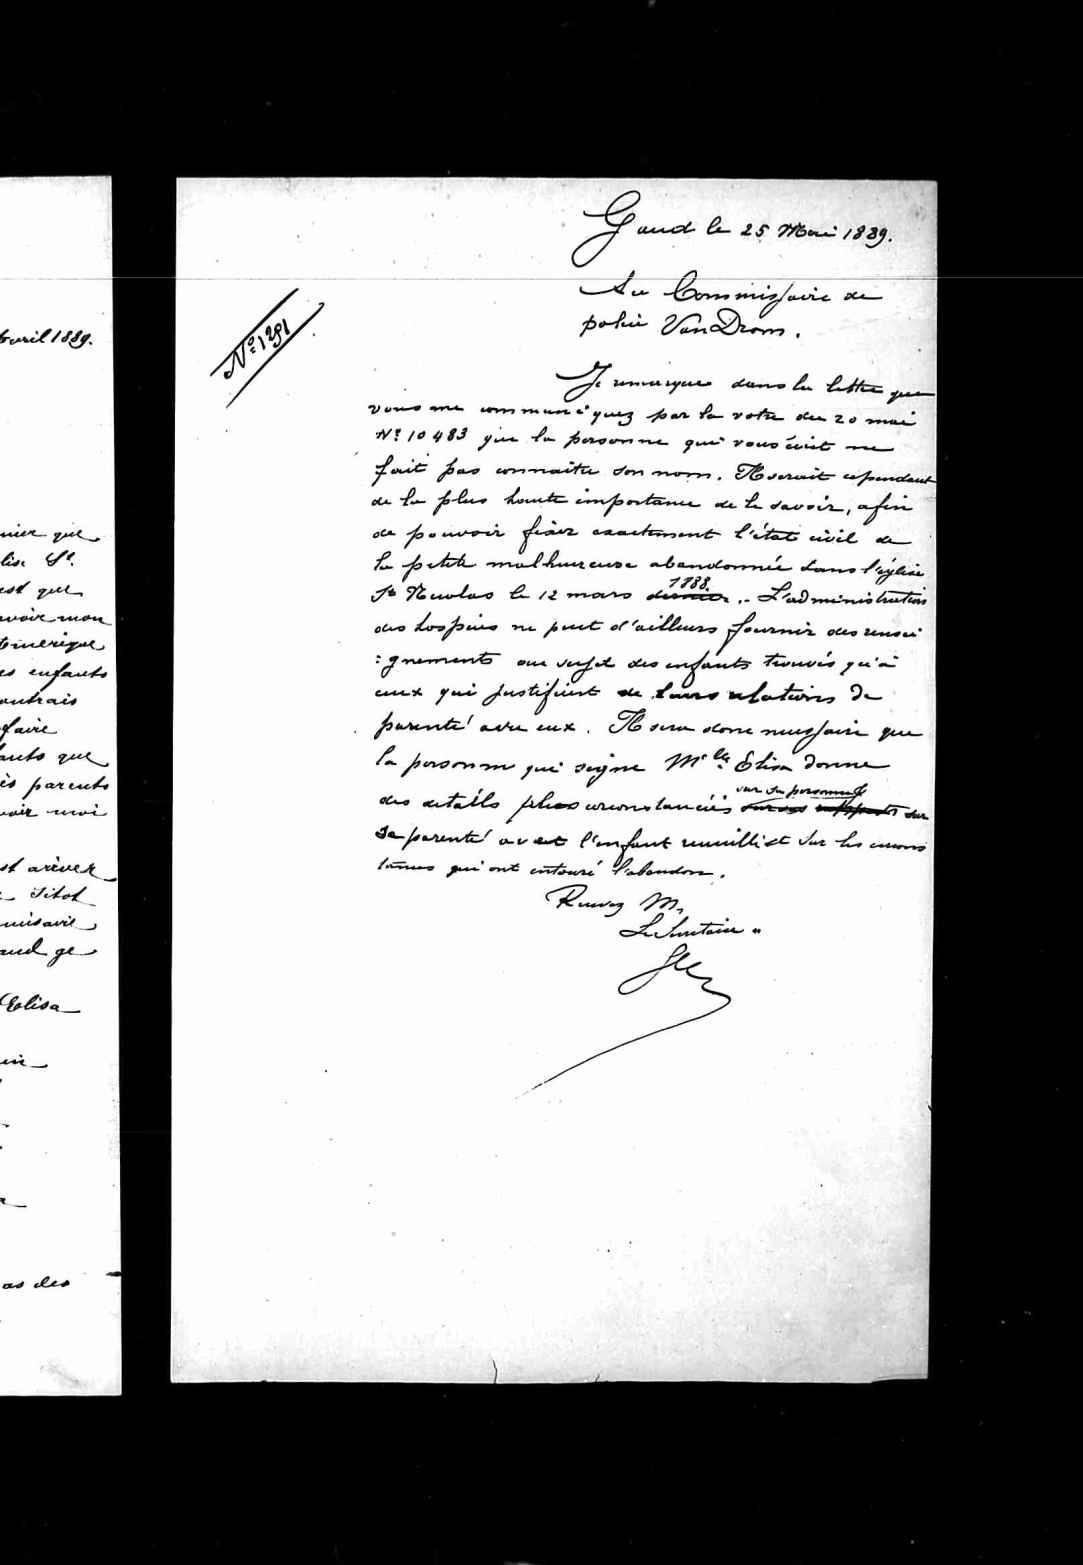 avril 1889.
nier que
lise St.
est que
avoir mon
Amerique
es enfants
faire
fants que
ès parents
voir moi
Elisa
as des
Gand le 25 Mai 1889.
Au Commissaire de
police Van Drom.
N° 1291
Je remarque dans la lettre que
vous me communiquez par la votre du 20 mai
N° 10483 que la personne qui vous écrit ne
fait pas connaitre son nom. Il serait cependant
de la plus haute importance de le savoir, afin
de pouvoir fixer exactement l'état civil de
la petite malheureuse abandonnée dans l'église
St Nicolas le 12 mars dernier 1888. - L'administration
des hospices ne peut d'ailleurs fournir des rensei
:gnements au sujet des enfants trouvés qu'à
ceux qui justifient de leurs relations de
parenté avec eux. Il sera donc nécessaire que
la personne qui signe Melle Elisa donne
sur sa personne &
des détails plus circonstanciés sur ses rapports sur
sa parenté avec l'enfant recueilli et sur les circons
tances qui ont entouré l'abandon.
Recevez M,
Le Secrétaire "